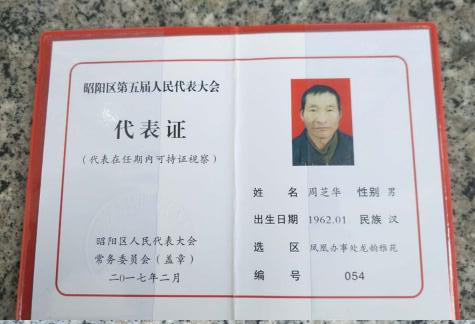 昭阳区第五届人民代表大会
代表证
(代表在任期内可持证视察)
昭阳区人民代表大会
常务委员会(盖章)
二〇一七年二月
姓 名 周芝华 性别 男
出生日期 1962.01 民族 汉
选 区 凤凰办事处龙韵雅苑
编 号 054